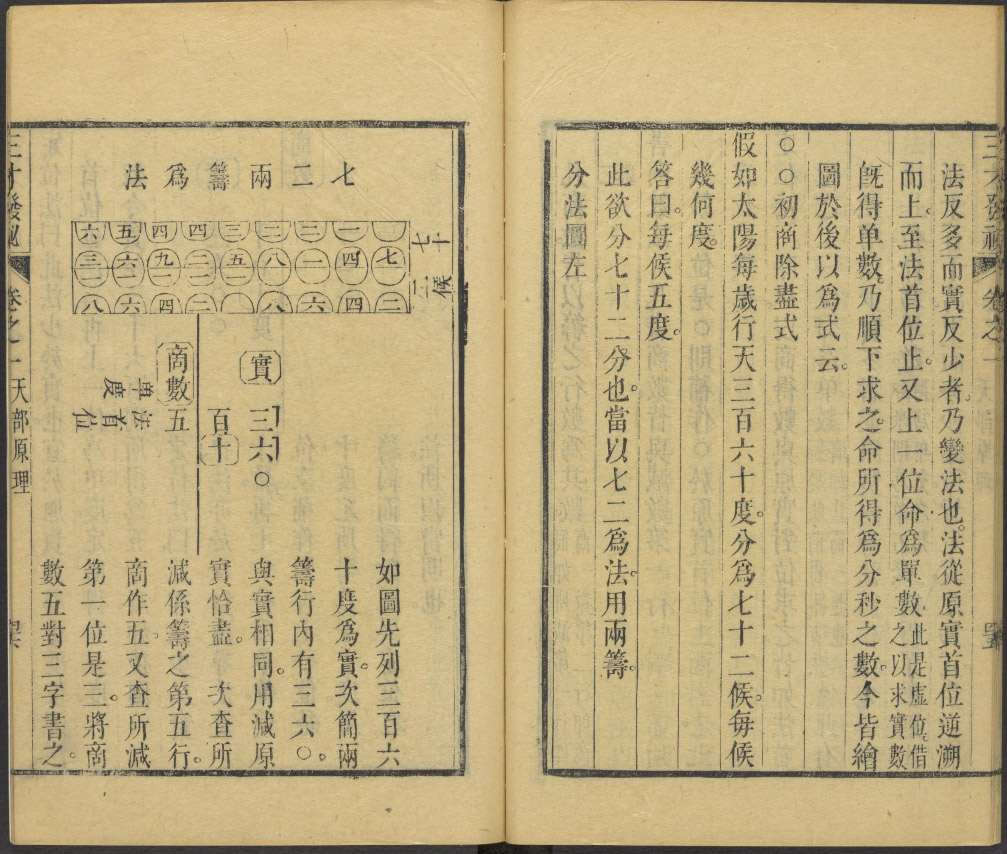 法反多而實反少者。乃變法也。法從原實首位逆溯
而上。至法首位止。又上一位命爲單數。此是虛位。借之以求實數
旣得单數。乃順下求之。命所得爲分秒之數。今皆繪
圖於後以爲式云。
○○初商除盡式
假如太陽每歲行天三百六十度。分爲七十二候。每候
幾何度。
答曰。每候五度。
此欲分七十二分也。當以七二爲法。用兩籌。
分法圖左
七二兩籌爲法
七十二候
實 三六○
百十
商數 五
法首位
單度
如圖先列三百六
十度爲實。次簡兩
籌行內有三六○。
與實相同。用減原
實恰盡。次查所
減係籌之第五行。
商作五。又查所減
第一位是三。將商
數五對三字書之。
三才發秘 卷之一 天部原理